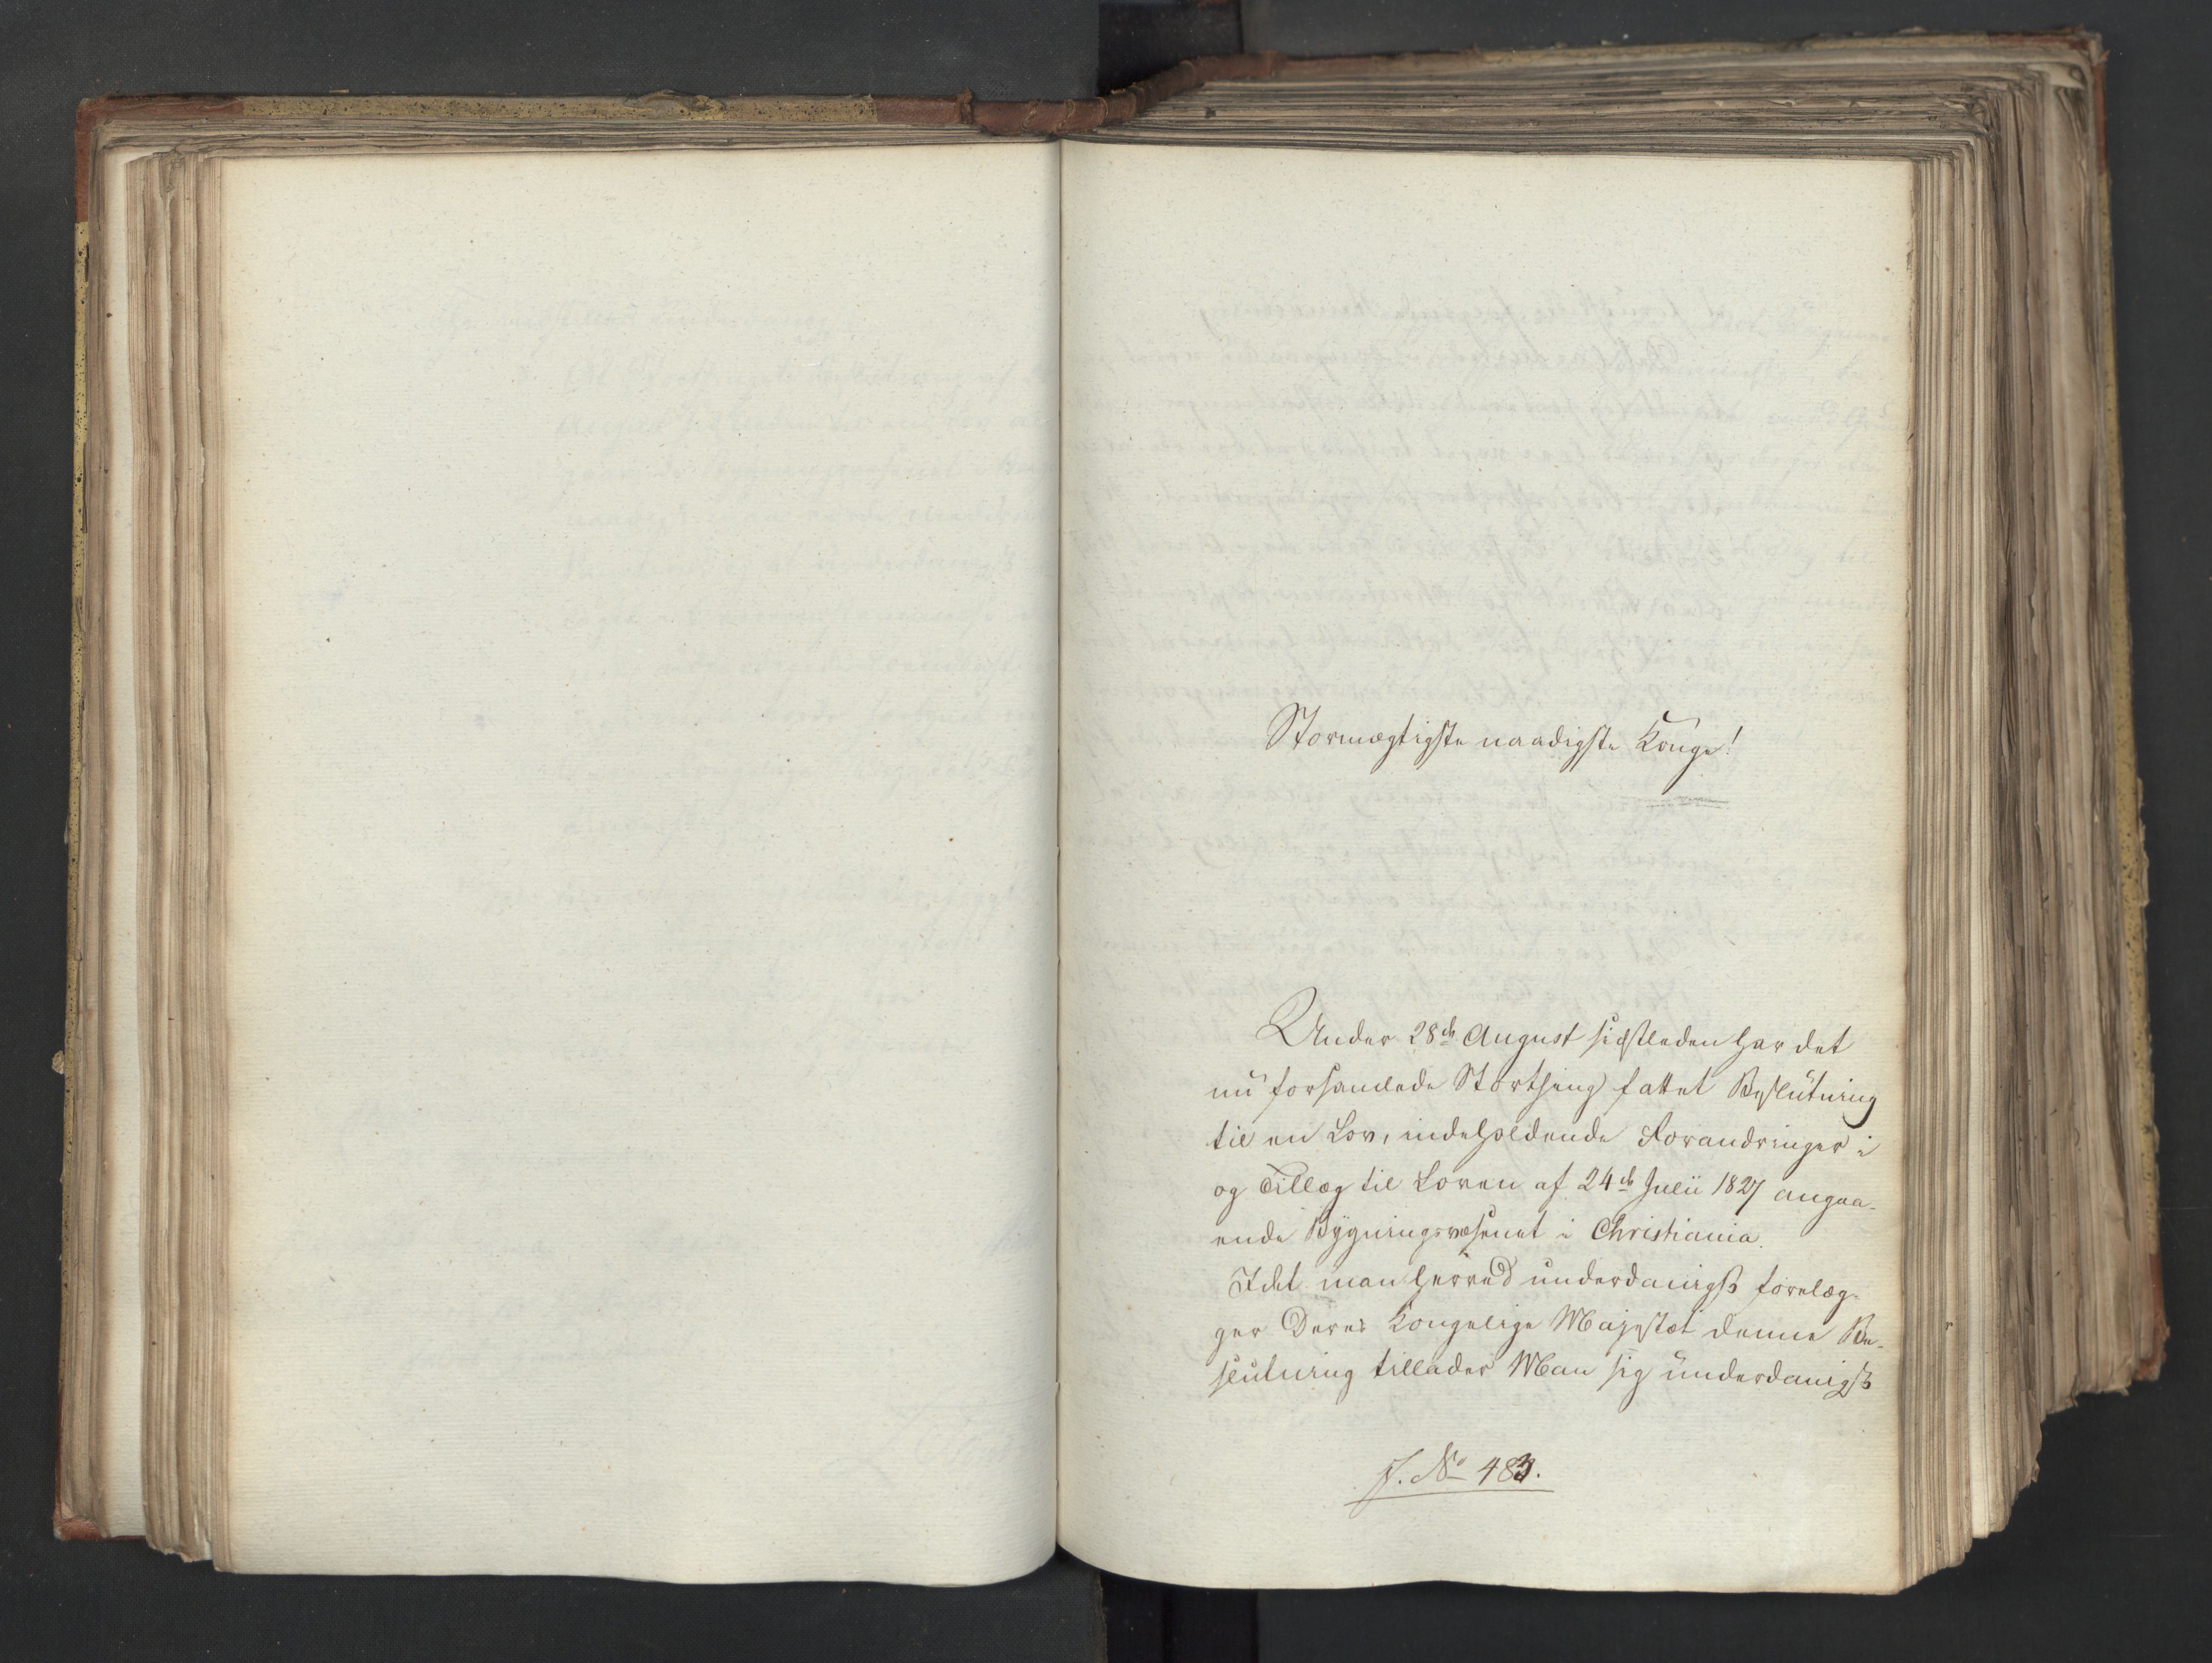 Stormægtigste naadigste Konge!
Under 28de August sidstleden har det
nu forsamlede Storthing fattet Beslutning
til en Lov, indeholdende Forandringer i
og Tillæg til Loven af 24de Julii 1827 angaa-
ende Bygningsvæsenet i Christiania.
Idet man herved underdanigst forelæg-
ger Deres Kongelige Majestæt denne Be-
slutning tillader Man sig underdanigst
J. No 483.